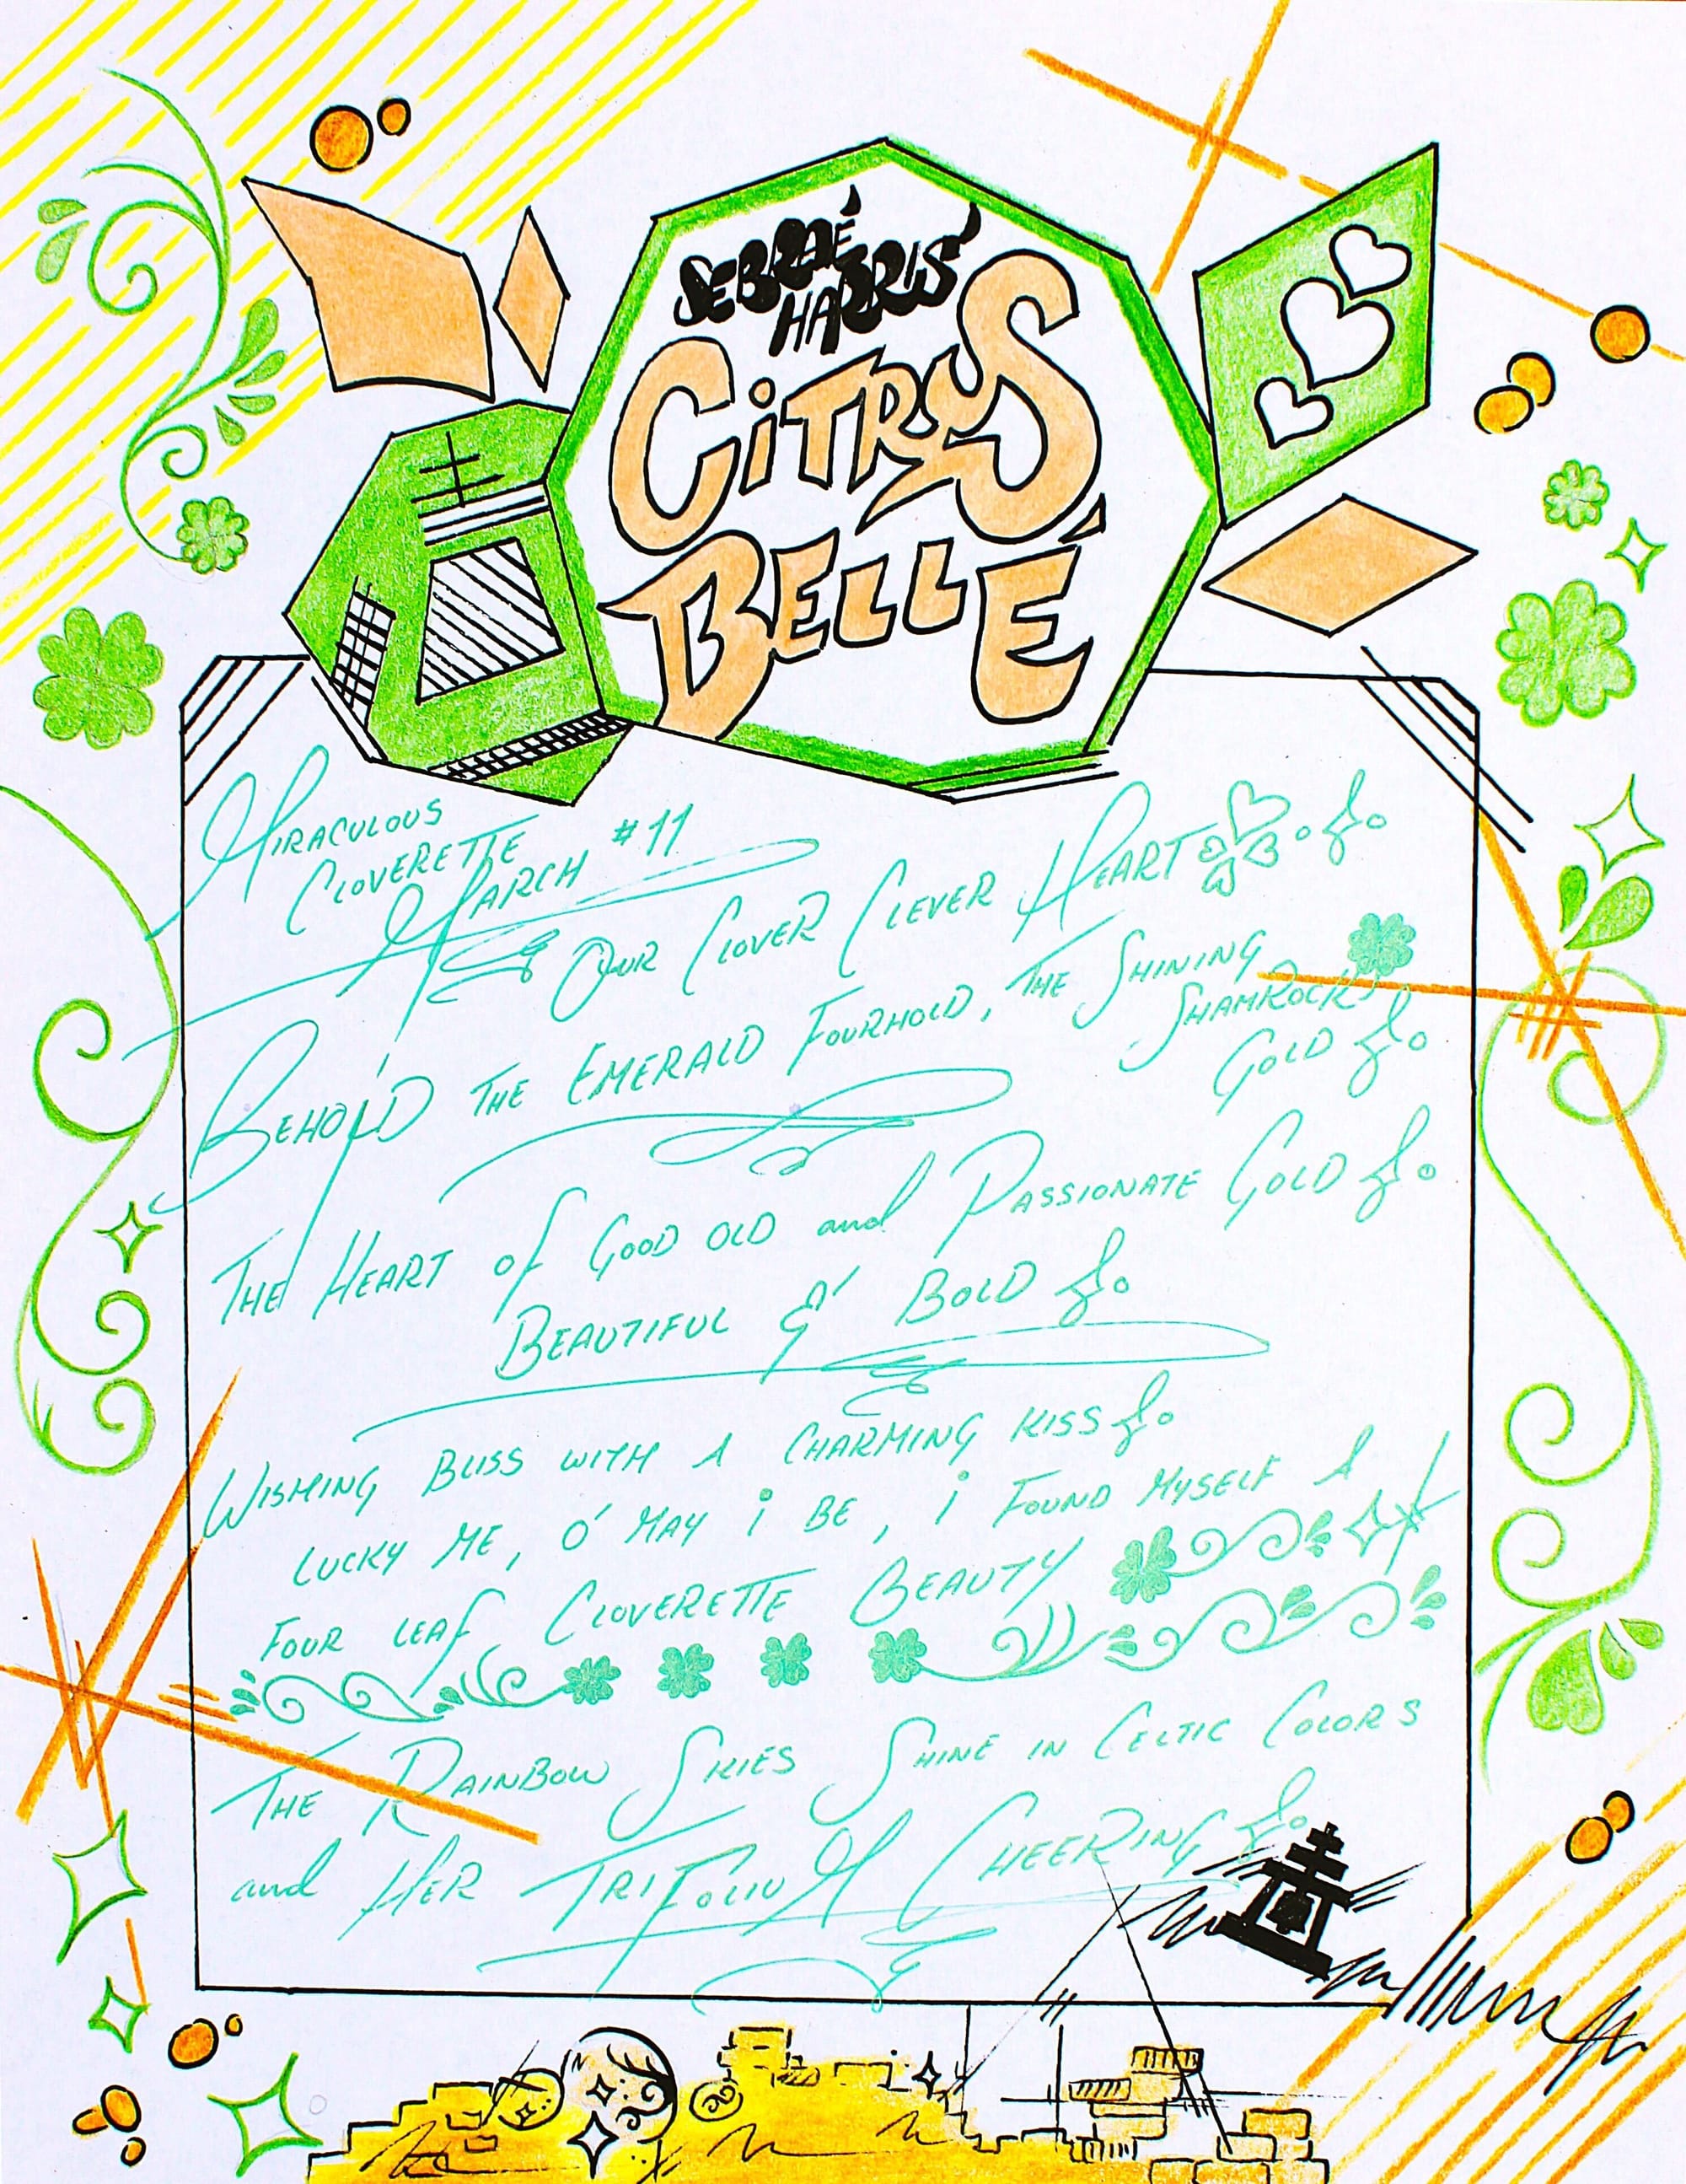 SEBRAÉ
HARRIS'
CiTRUS
BELLÉ
MIRACULOUS
CLOVERETTE
MARCH #11
OUR CLOVER CLEVER HEART
BEHOL'D THE EMERALD FOURHOLD, THE SHINING
SHAMROCK
GOLD
THE HEART of GOOD OLD and PASSIONATE GOLD
BEAUTIFUL & BOLD
WISHING BLISS WITH A CHARMING KISS
LUCKY ME, O' MAY i BE, i FOUND MYSELF A
FOUR LEAF CLOVERETTE BEAUTY
THE RAINBOW SKIES SHINE IN CELTIC COLORS
and HER TRIFOLIUM CHEERING